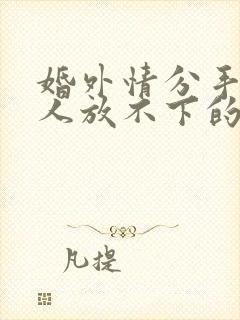 婚外情分手
人放不下的
凡提